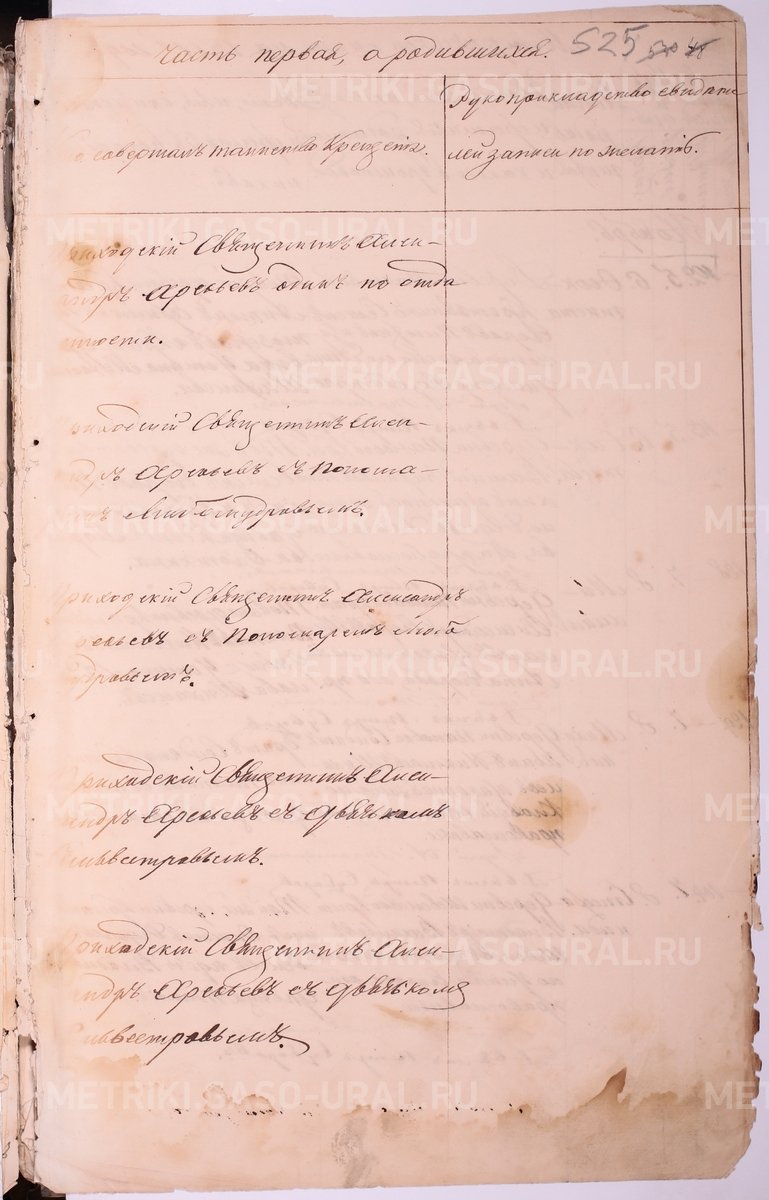 Часть первая, о родившихся. 525
Рукоприкладство свидете-
совершалъ таинство Крещенія.
лей записи по желанію.
Приходскій Священникъ Алек-
сандръ Арефьевъ одинъ по отда
ленности.
Приходскій Священникъ Алек-
сандръ Арефьевъ съ Понома-
ремъ
Приходскій Священникъ Александръ
Арефьевъ съ Пономаремъ
Приходскій Священникъ Алек-
сандръ Арефьевъ съ дьячкомъ
Сильвестровымъ.
Приходскій Священникъ Алек-
сандръ Арефьевъ съ дьячкомъ
Сильвестровымъ.
METRIKI.GASO-URAL.RU